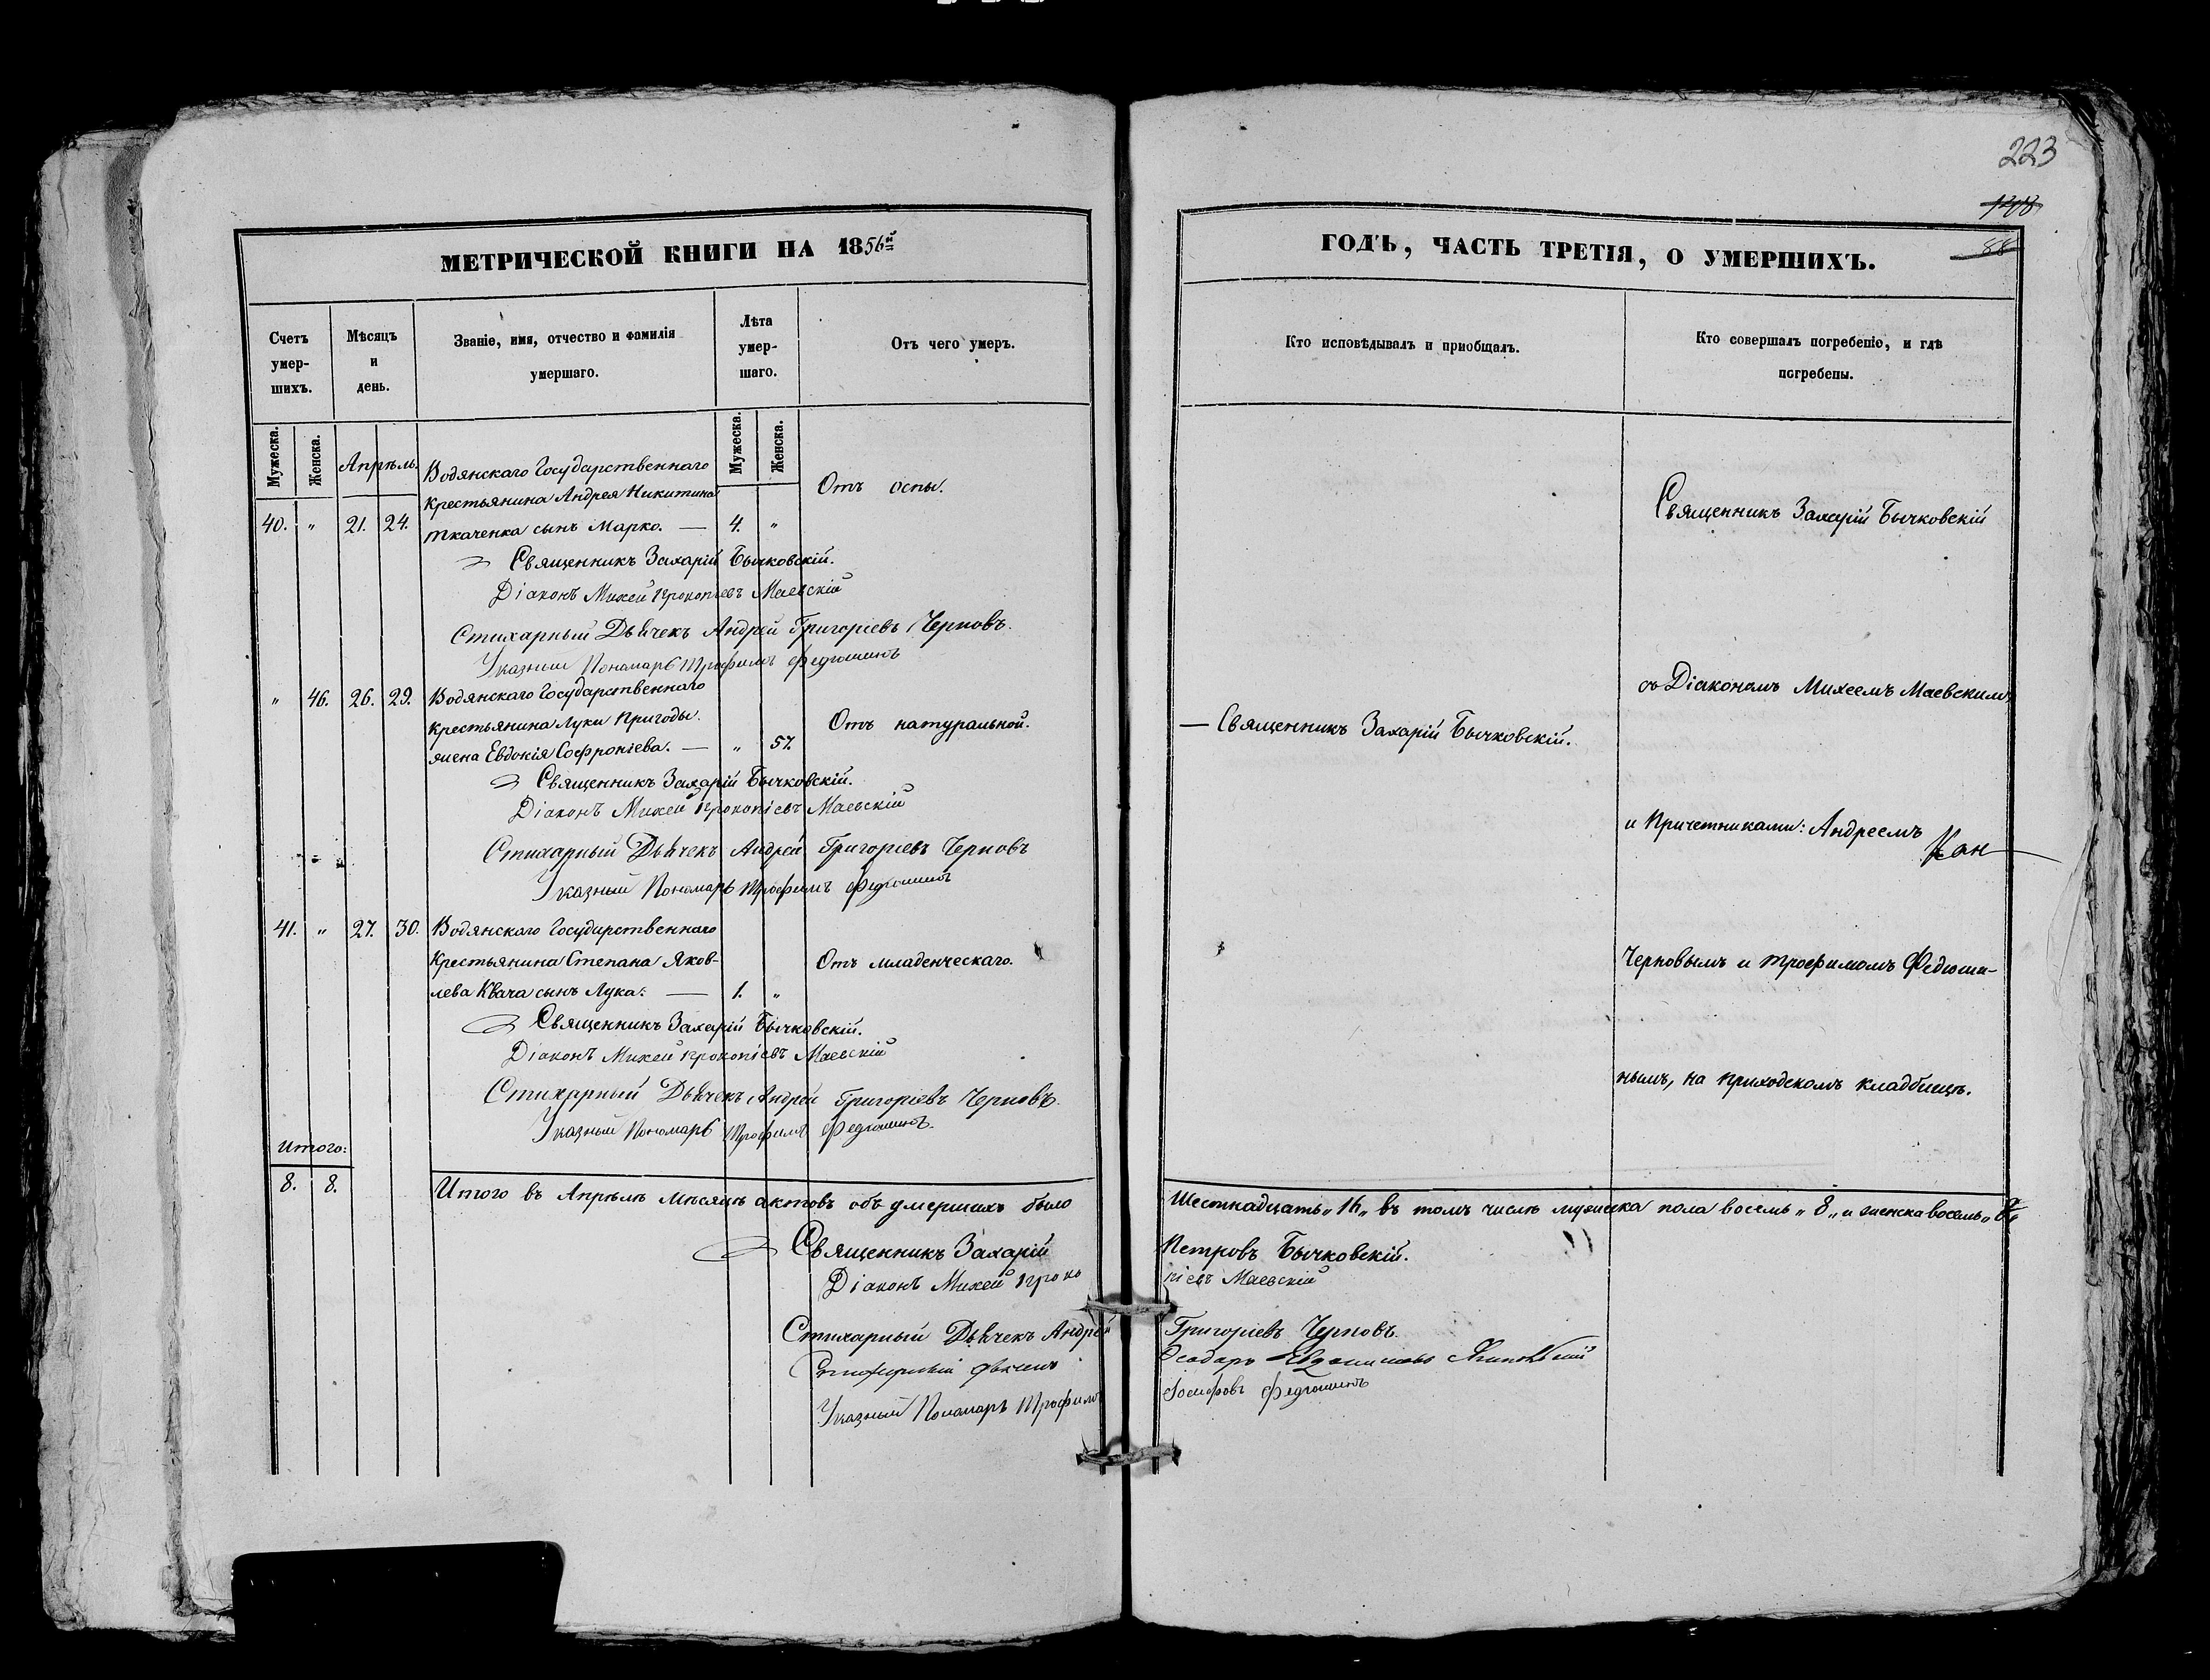 МЕТРИЧЕСКОЙ КНИГИ НА 1856й
Счетъ умер-шихъ.
Мѣсяцъ и день.
Званіе, имя, отчество и фамилія умершаго.
Лѣта умер-шаго.
Отъ чего умеръ.
Мужеска.
Женска.
Апрѣль.
Мужеска.
Женска.
Водянскаго Государственнаго
Крестьянина Андрея Никитина
40. " 21. 24. Ткаченка сынъ Марко. — 4. "
Отъ оспы.
Священникъ Захарій Бычковскій.
Діаконъ Михей Прокопіевъ Маевскій
Стихарный Дьячекъ Андрей Григоріевъ Черновъ.
Указный Пономарь Трофимъ Федюшинъ
" 46. 26. 29. Водянскаго Государственнаго
Крестьянина Луки Пригоды.
жена Евдокія Софроніева. — " 57.
Отъ натуральной.
Священникъ Захарій Бычковскій.
Діаконъ Михей Прокопіевъ Маевскій
Стихарный Дьячекъ Андрей Григоріевъ Черновъ
Указный Пономарь Трофимъ Федюшинъ
41. " 27. 30. Водянскаго Государственнаго
Крестьянина Степана Яков-
лева Квача сынъ Лука. — 1. "
Отъ младенческаго.
Священникъ Захарій Бычковскій.
Діаконъ Михей Прокопіевъ Маевскій
Стихарный Дьячекъ Андрей Григоріевъ Черновъ.
Указный Пономарь Трофимъ Федюшинъ.
Итого:
8. 8.
Итого въ Апрѣлѣ мѣсяцѣ актовъ объ умершихъ было
Священникъ Захарій
Діаконъ Михей Проко
Стихарный Дьячекъ Андрей
Стихарный дьячекъ
Указный Пономарь Трофимъ
223
88
ГОДЪ, ЧАСТЬ ТРЕТІЯ, О УМЕРШИХЪ.
Кто исповѣдывалъ и приобщалъ.
Кто совершалъ погребеніе, и гдѣ погребены.
Священникъ Захарій Бычковскій
съ Діакономъ Михеемъ Маевскимъ,
— Священникъ Захарій Бычковскій.
и Причетниками: Андреемъ
Кан
Черновымъ и Трофимомъ Федюши-
нымъ, на приходскомъ кладбищѣ.
Шестнадцать „16„ въ томъ числѣ мужеска пола восемь „8„ и женска восемь „8„
Петровъ Бычковскій.
піевъ Маевскій
Григоріевъ Черновъ.
Іосифовъ Федюшинъ